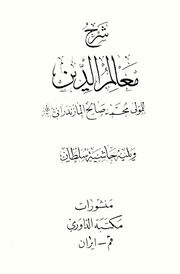 شرح
معالم الدين
للمولى محمد صالح المازندراني
ويليه حاشية سلطان
منشورات
مكتبة الداوري
قم - ايران